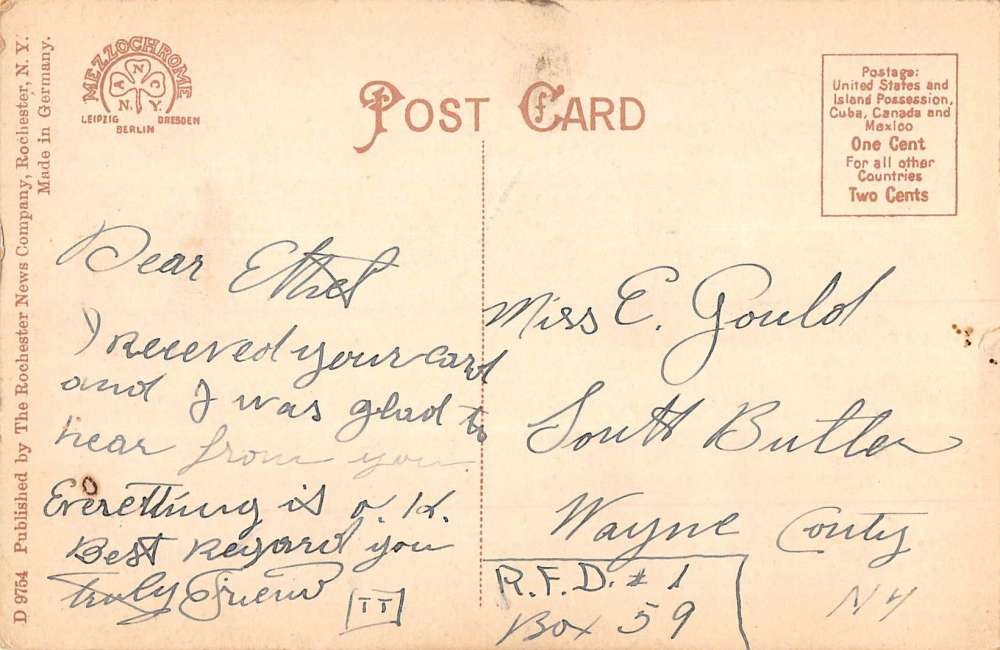 D 9754 Published by The Rochester News Company, Rochester, N. Y.
Made in Germany.
MEZZOCHROME
A N C
N. Y.
LEIPZIG DRESDEN
BERLIN
POST CARD
Postage:
United States and
Island Possession,
Cuba, Canada and
Mexico
One Cent
For all other
Countries
Two Cents
Dear Ethel
I receeved your card
and I was glad to
hear from you
Evereething is O. K.
Best Regard you
truly Friend
TT
Miss E. Gould
South Butler
Wayne Conty
N Y
R.F.D. # 1
Box 59